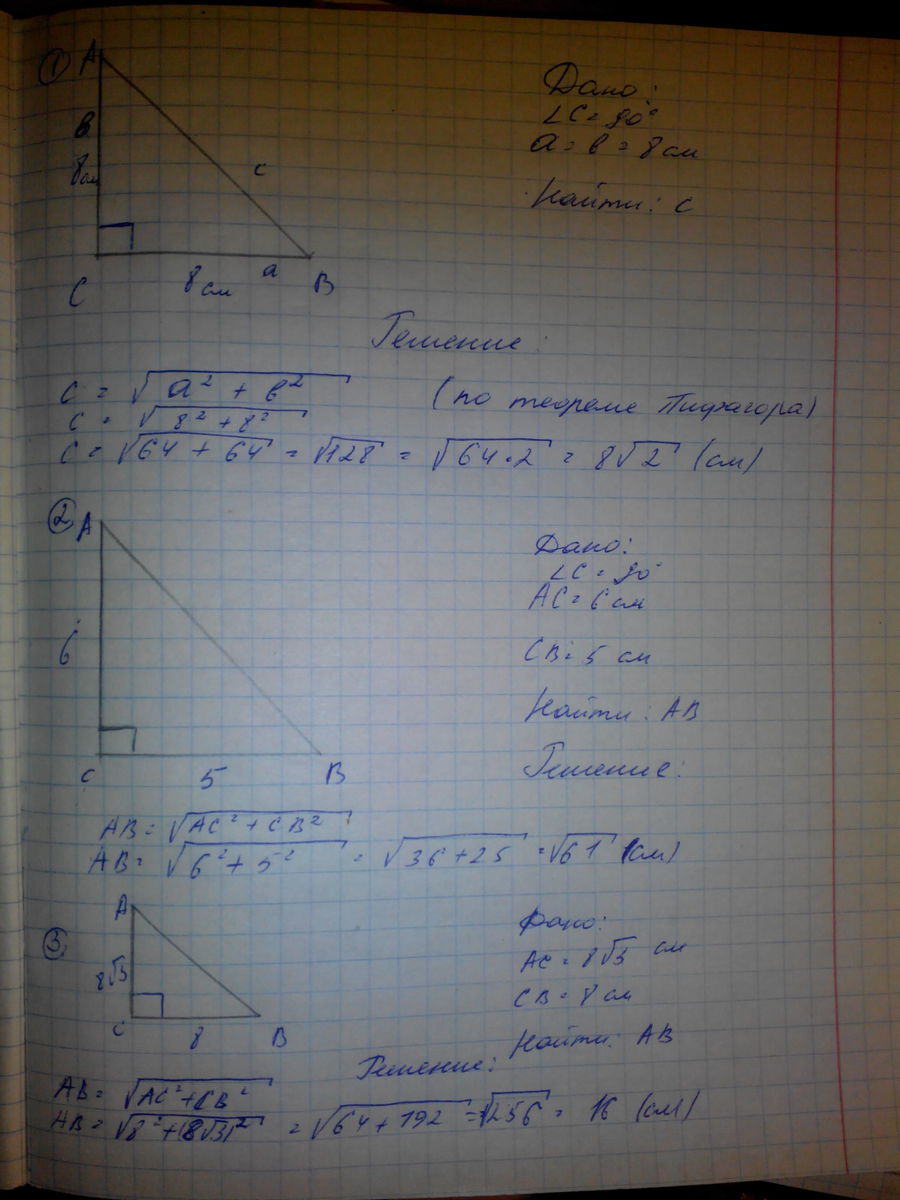 ①
A
в
8см
c
C
8см
a
B
Дано:
∠C = 90°
a = в = 8 см
Найти: c
Решение:
c = √a² + в² (по теореме Пифагора)
c = √8² + 8²
c = √64 + 64 = √128 = √64·2 = 8√2 (см)
②
A
6
C
5
B
Дано:
∠C = 90°
AC = 6 см
CB = 5 см
Найти: AB
Решение:
AB = √AC² + CB²
AB = √6² + 5² = √36 + 25 = √61 (см)
③
A
8√3
C
8
B
Дано:
AC = 8√3 см
CB = 8 см
Найти: AB
Решение:
AB = √AC² + CB²
AB = √8² + (8√3)² = √64 + 192 = √256 = 16 (см)